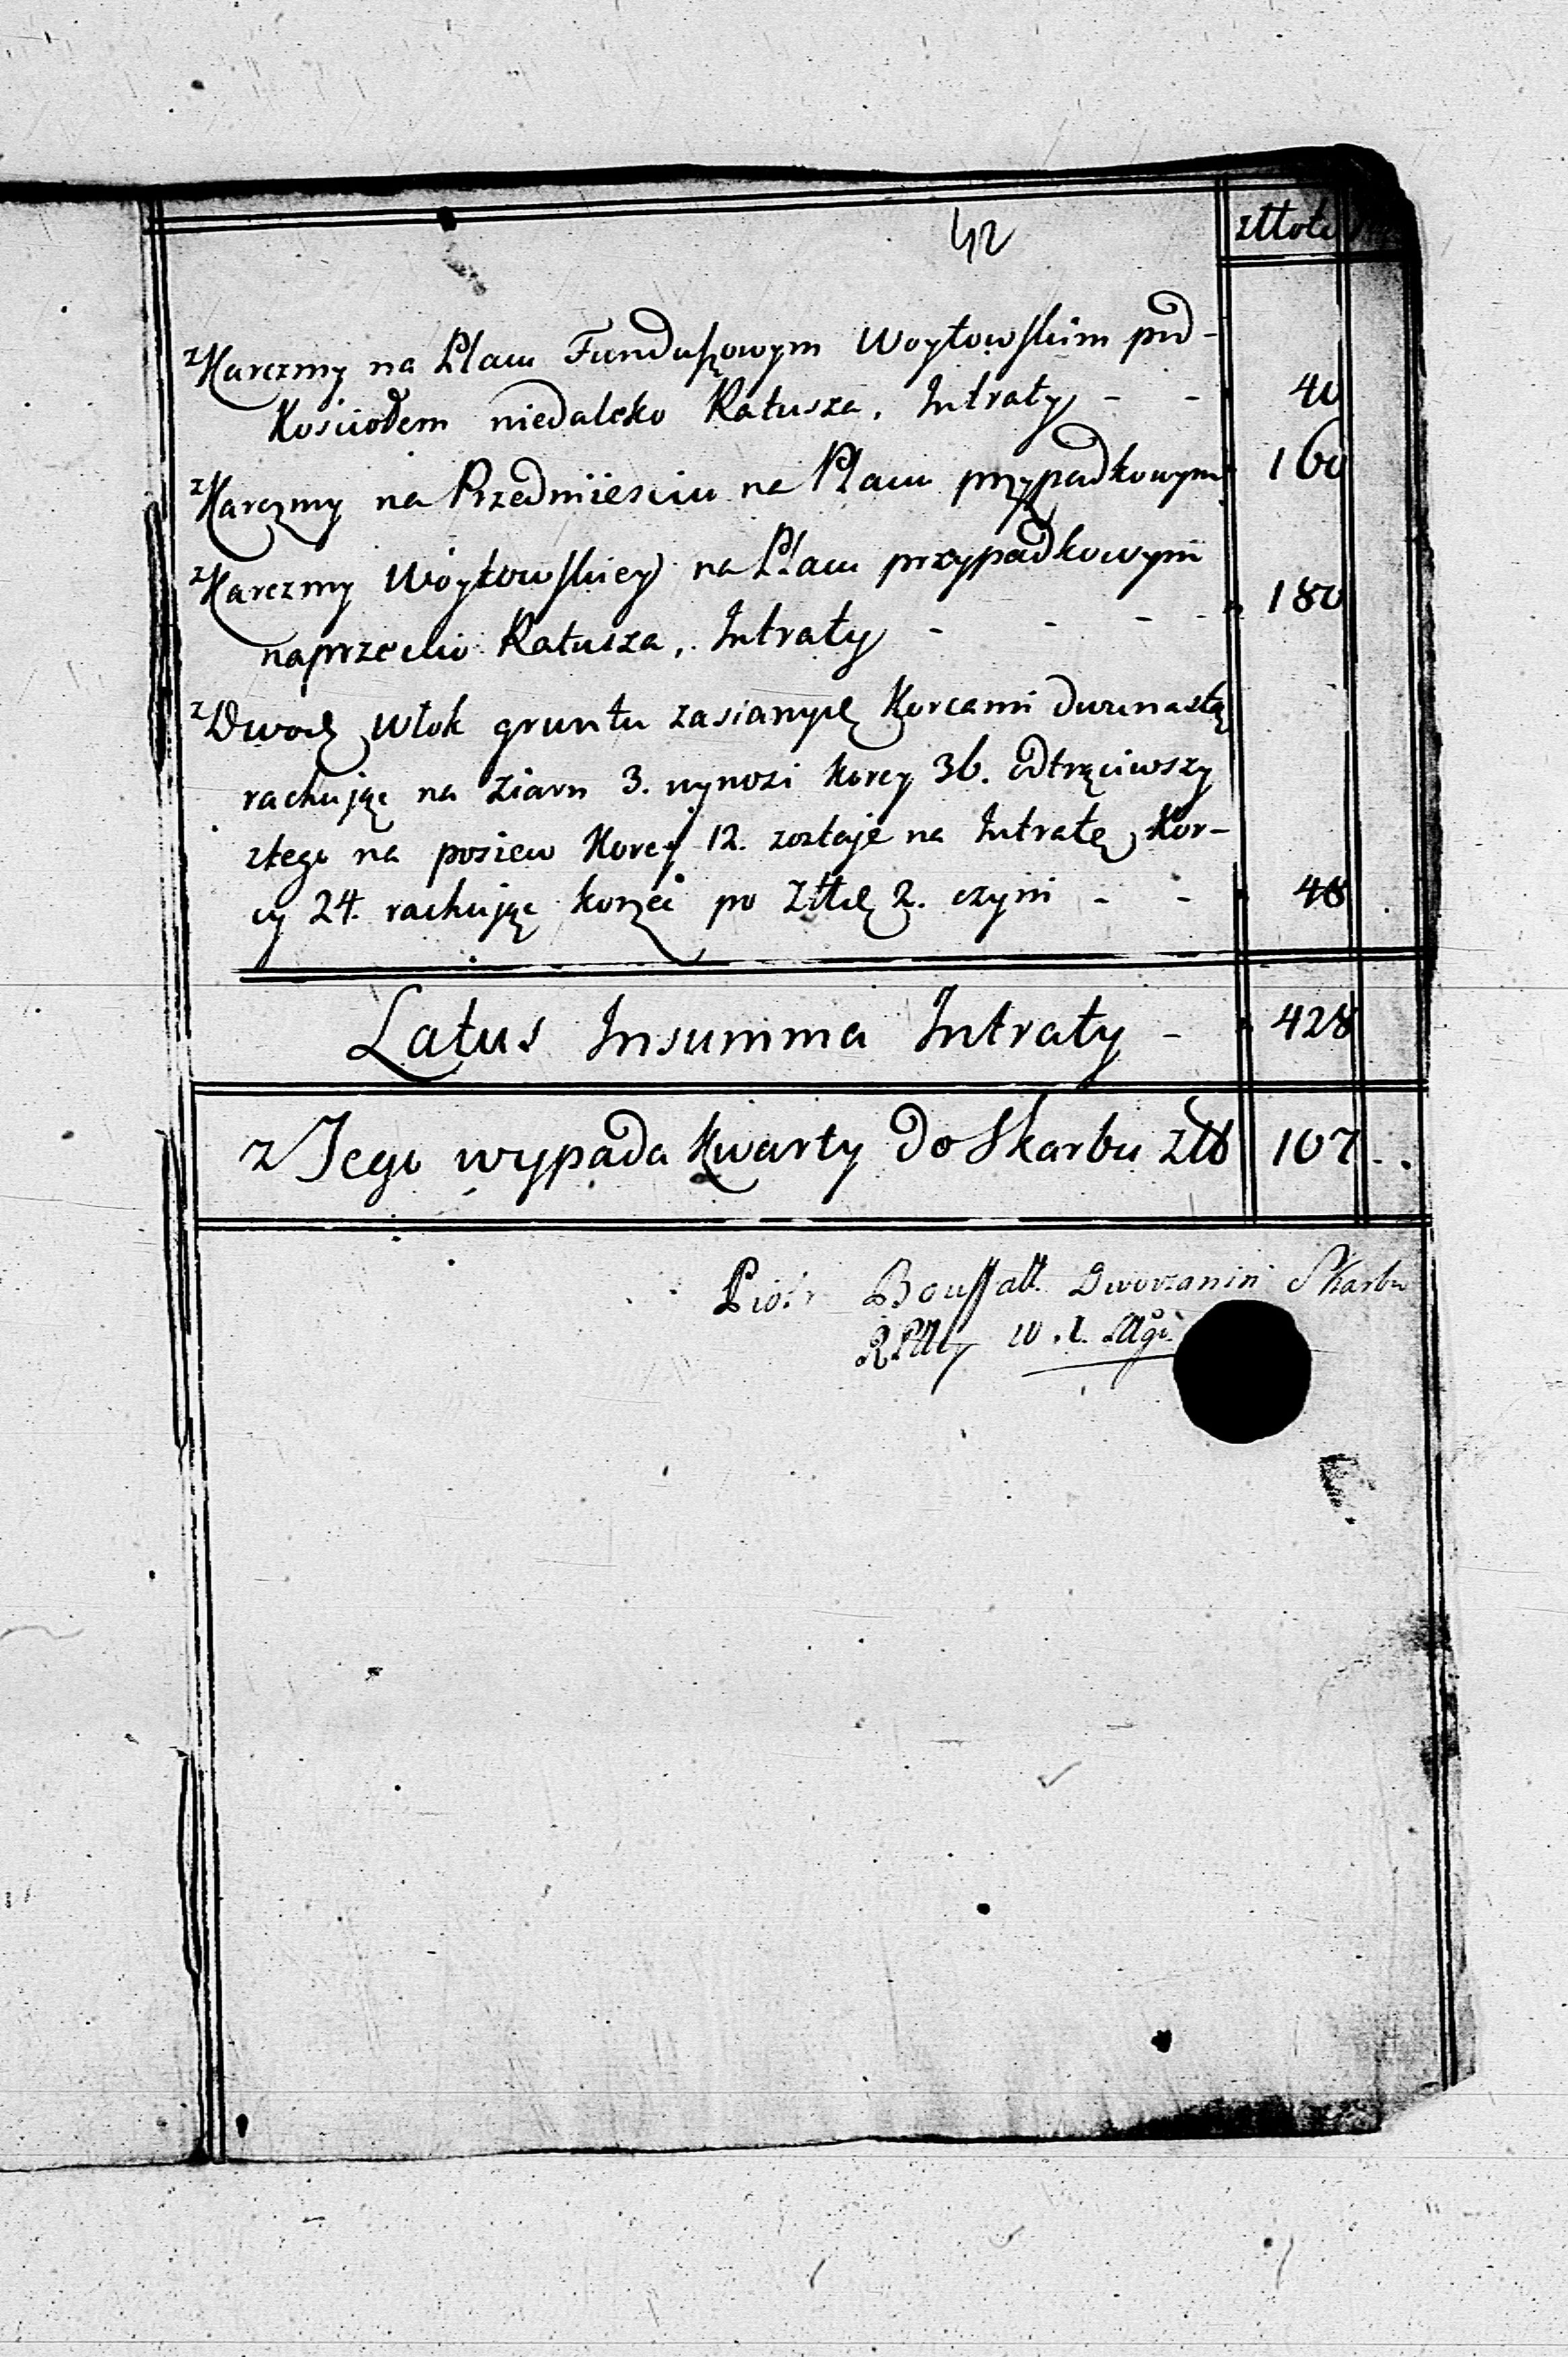 42 złłote
z Karczmy na Placu Funduszowym Woytowskim pod-
Kosciołem niedaleko Ratusza, Intraty - - 40
z Karczmy na Przedmiesciu na Placu przypadkowym 160
z Karczmy Woytowskiey na Placu przypadkowym
naprzeciw Ratusza, Intraty - - - - 180
z Dwoch Włok gruntu zasianych Korcami dwunastą
rachując na ziarn 3. wynosi korcy 36. odtrąciwszy
ztego na posiew Korcy 12. zostaje na Intratę Kor-
cy 24. rachując korzec po złłch 2. czyni - - 48
Latus Insumma Intraty - 428
z Tego wypada Kwarty do Skarbu złł 107 - .
Piotr Bouffałł Dworzanin Skarbu
W. X.